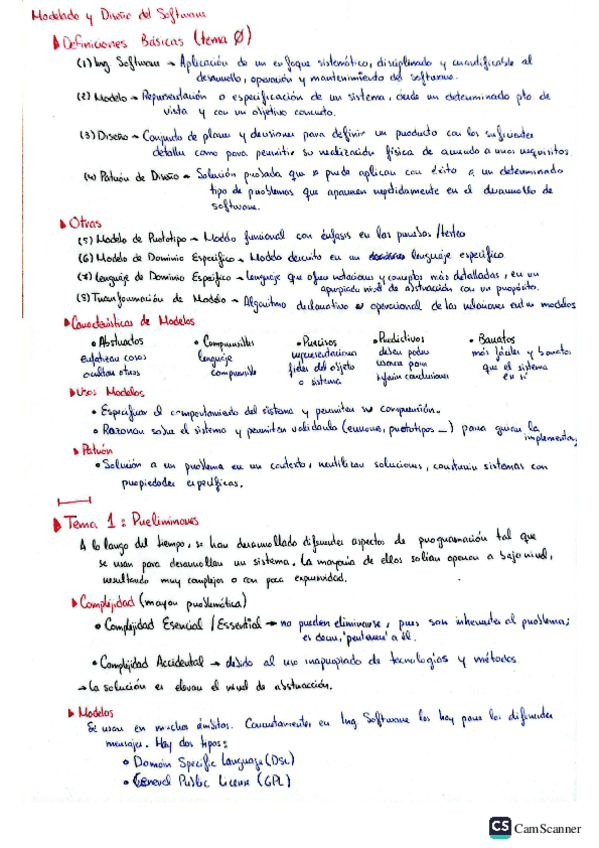 Modelado y Diseño del Software
Definiciones Básicas (tema 0)
(1) Ing Software → Aplicación de un enfoque sistemático, disciplinado y cuantificable al
desarrollo, operación y mantenimiento del software.
(2) Modelo → Representación o especificación de un sistema, desde un determinado pto. de
vista y con un objetivo concreto.
(3) Diseño → Conjunto de planes y decisiones para definir un producto con los suficientes
detalles como para permitir su realización física de acuerdo a unos requisitos.
(4) Patrón de Diseño → Solución probada que se puede aplicar con éxito a un determinado
tipo de problemas que aparecen repetidamente en el desarrollo de
software.
Otras
(5) Modelo de Prototipo → Modelo funcional con énfasis en las pruebas/testeo
(6) Modelo de Dominio Específico → Modelo descrito en un lenguaje específico.
(7) Lenguaje de Dominio Específico → Lenguaje que ofrece notaciones y conceptos más detalladas, en un
apropiado nivel de abstracción con un propósito.
(8) Transformación de Modelo → Algoritmo declarativo u operacional de las relaciones entre modelos
Características de Modelos
• Abstractos • Comprensibles • Precisos • Predictivos • Baratos
enfatizan cosas lenguaje representaciones deben poder más fáciles y baratos
ocultan otras comprensible fieles del objeto usarse para que el sistema
o sistema inferir conclusiones en sí
Usos Modelos
• Especificar el comportamiento del sistema y permiten su comprensión.
• Razonar sobre el sistema y permiten validarlo (errores, prototipos ...) para guiar la
implementac.
Patrón
• Solución a un problema en un contexto, reutilizar soluciones, construir sistemas con
propiedades específicas.
Tema 1: Preliminares
A lo largo del tiempo, se han desarrollado diferentes aspectos de programación tal que
se usan para desarrollar un sistema. La mayoría de ellos solían operar a bajo nivel,
resultando muy complejos o con poca expresividad.
Complejidad (mayor problemática)
• Complejidad Esencial / Essential → no pueden eliminarse, pues son inherentes al problema;
es decir, 'pertenece' a él.
• Complejidad Accidental → debido al uso inapropiado de tecnologías y métodos.
→ La solución es elevar el nivel de abstracción.
Modelos
Se usan en muchos ámbitos. Concretamente en Ing Software los hay para los diferentes
mensajes. Hay dos tipos:
• Domain Specific Language (DSL)
• General Public License (GPL)
CS CamScanner